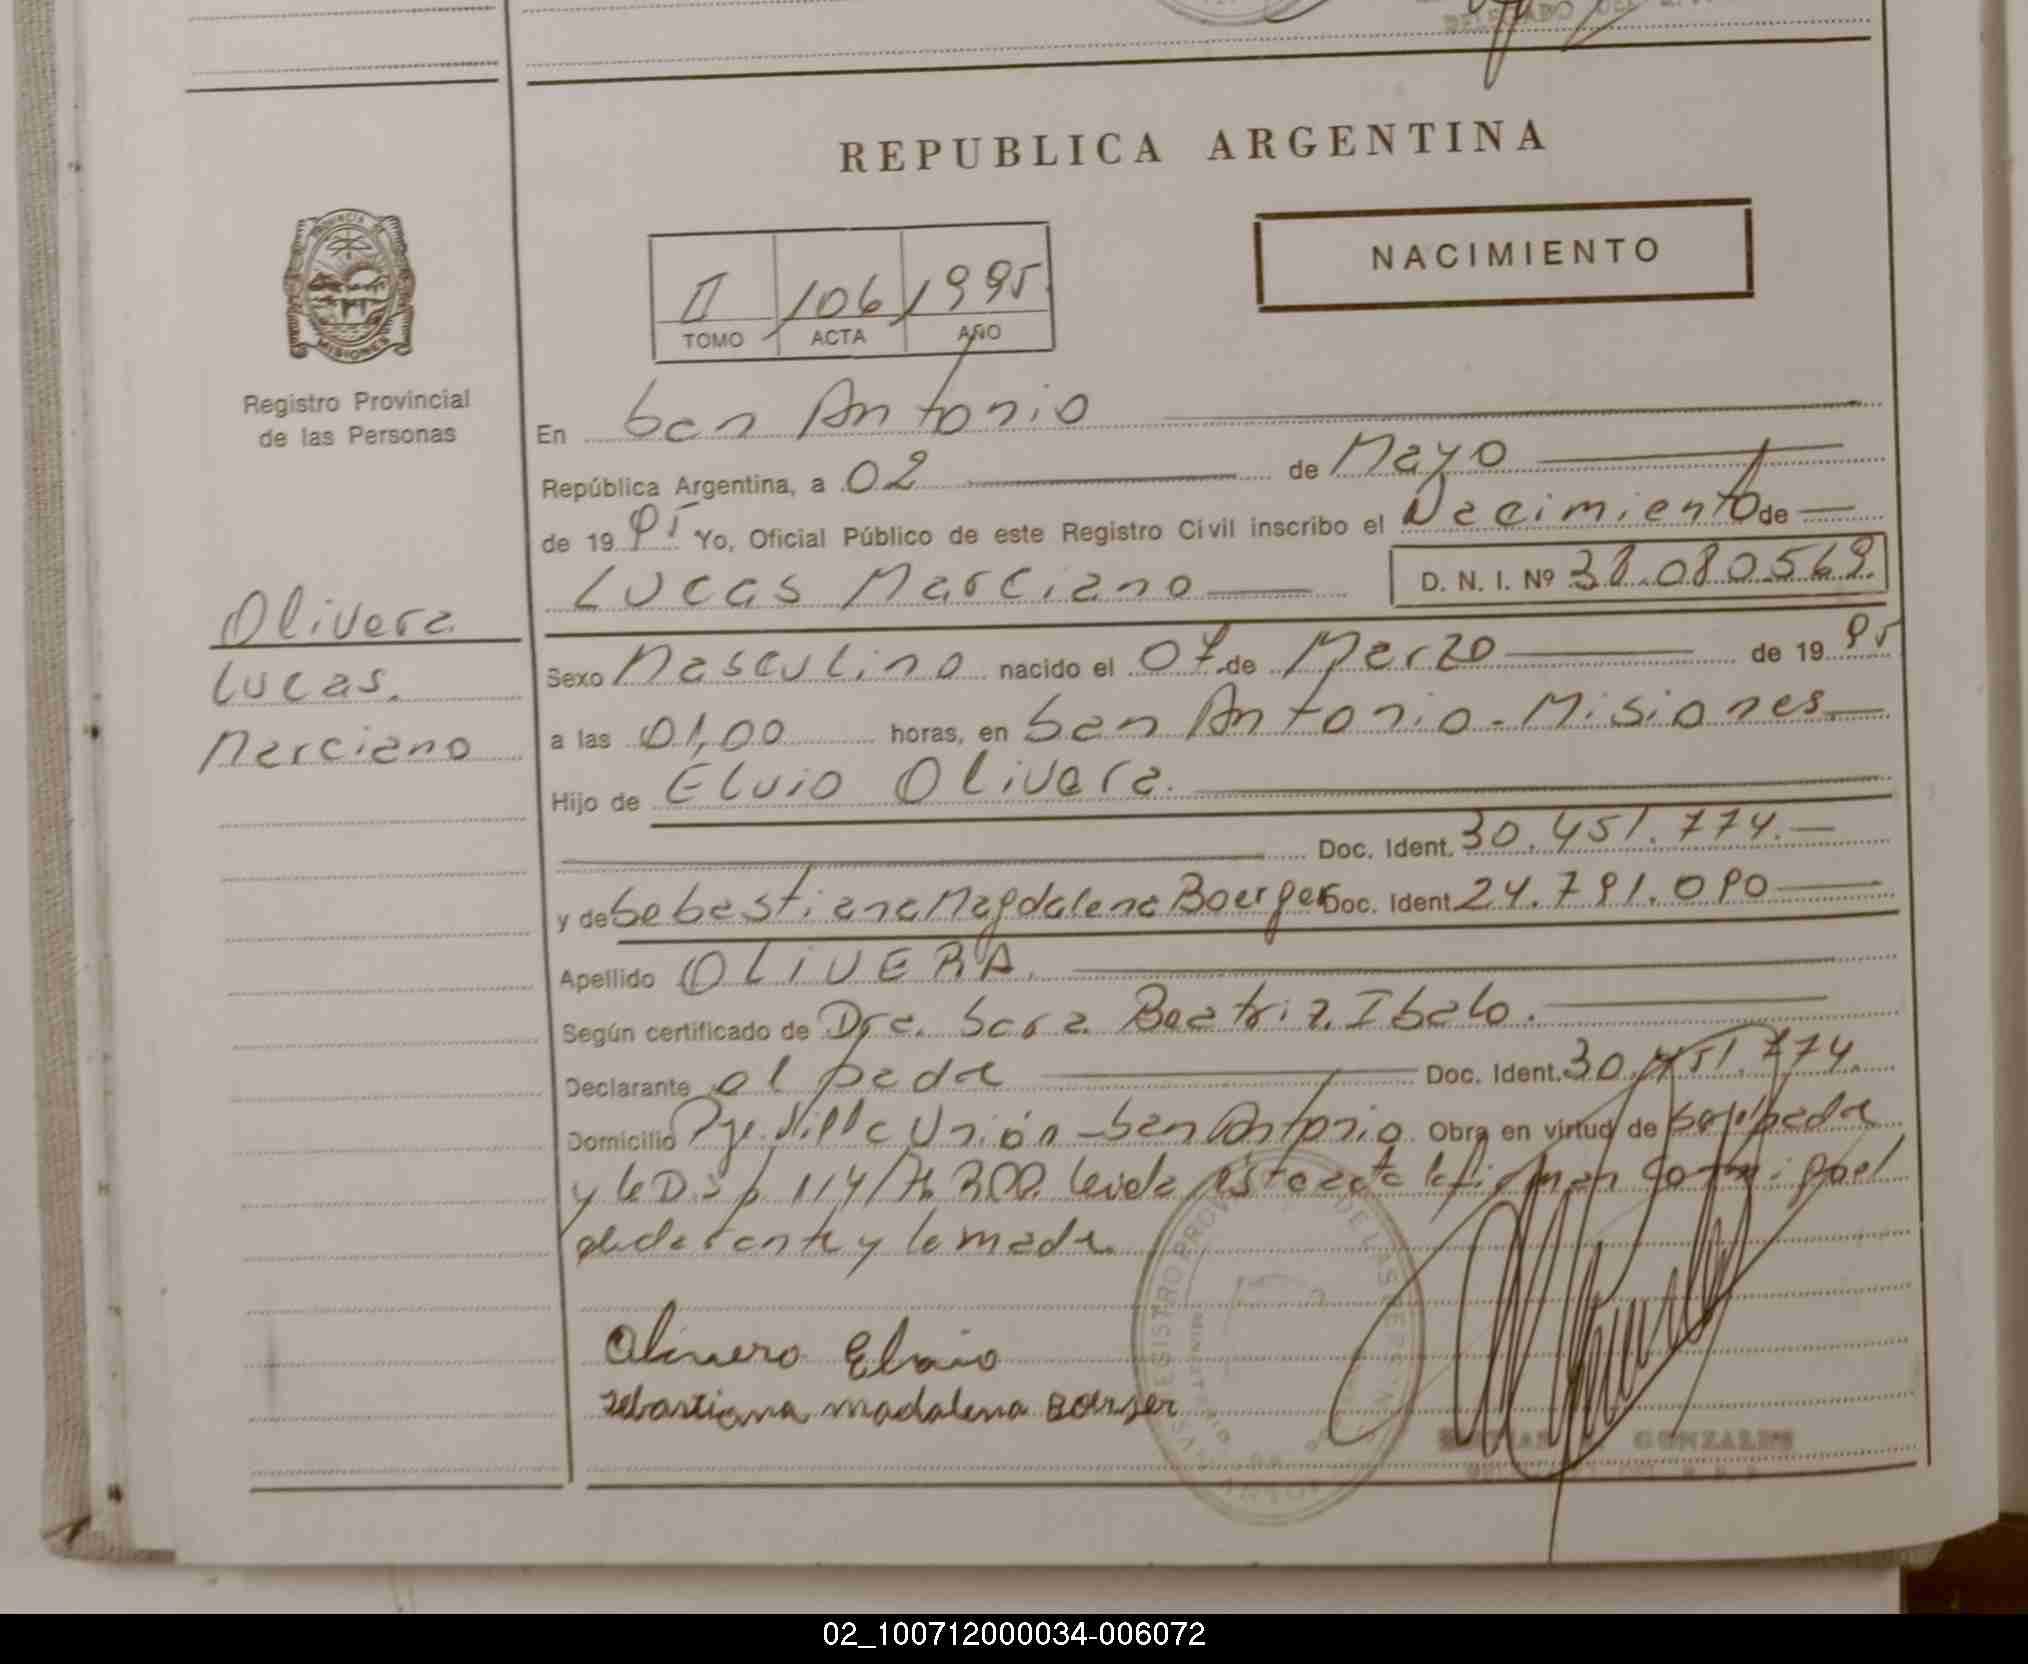 REPUBLICA ARGENTINA
NACIMIENTO
II 106 1995
TOMO ACTA AÑO
PROVINCIA DE
MISIONES
Registro Provincial
de las Personas
Olivera
Lucas
Marciano
En San Antonio
República Argentina, a 02 de Mayo
de 19 95 Yo, Oficial Público de este Registro Civil inscribo el Nacimiento de
Lucas Marciano D. N. I. Nº 38.080.569.
Sexo Masculino nacido el 07 de Marzo de 19 95
a las 01,00 horas, en San Antonio - Misiones
Hijo de Elvio Olivera.
Doc. Ident. 30.451.774.
y de Sebastiana Magdalena Boerger Doc. Ident. 24.791.090
Apellido OLIVERA.
Según certificado de Dra. Sara Beatriz Ibalo.
Declarante el padre Doc. Ident. 30.451.774.
Domicilio Pje. Villa Unión - San Antonio Obra en virtud de ser el padre
y la Disp 114/ leida esta acta la firman conmigo el
declarante y la madre.
Olivero Elvio
Sebastiana madalena Boerger
REGISTRO PROVINCIAL DE LAS PERSONAS
GONZALES
02_100712000034-006072